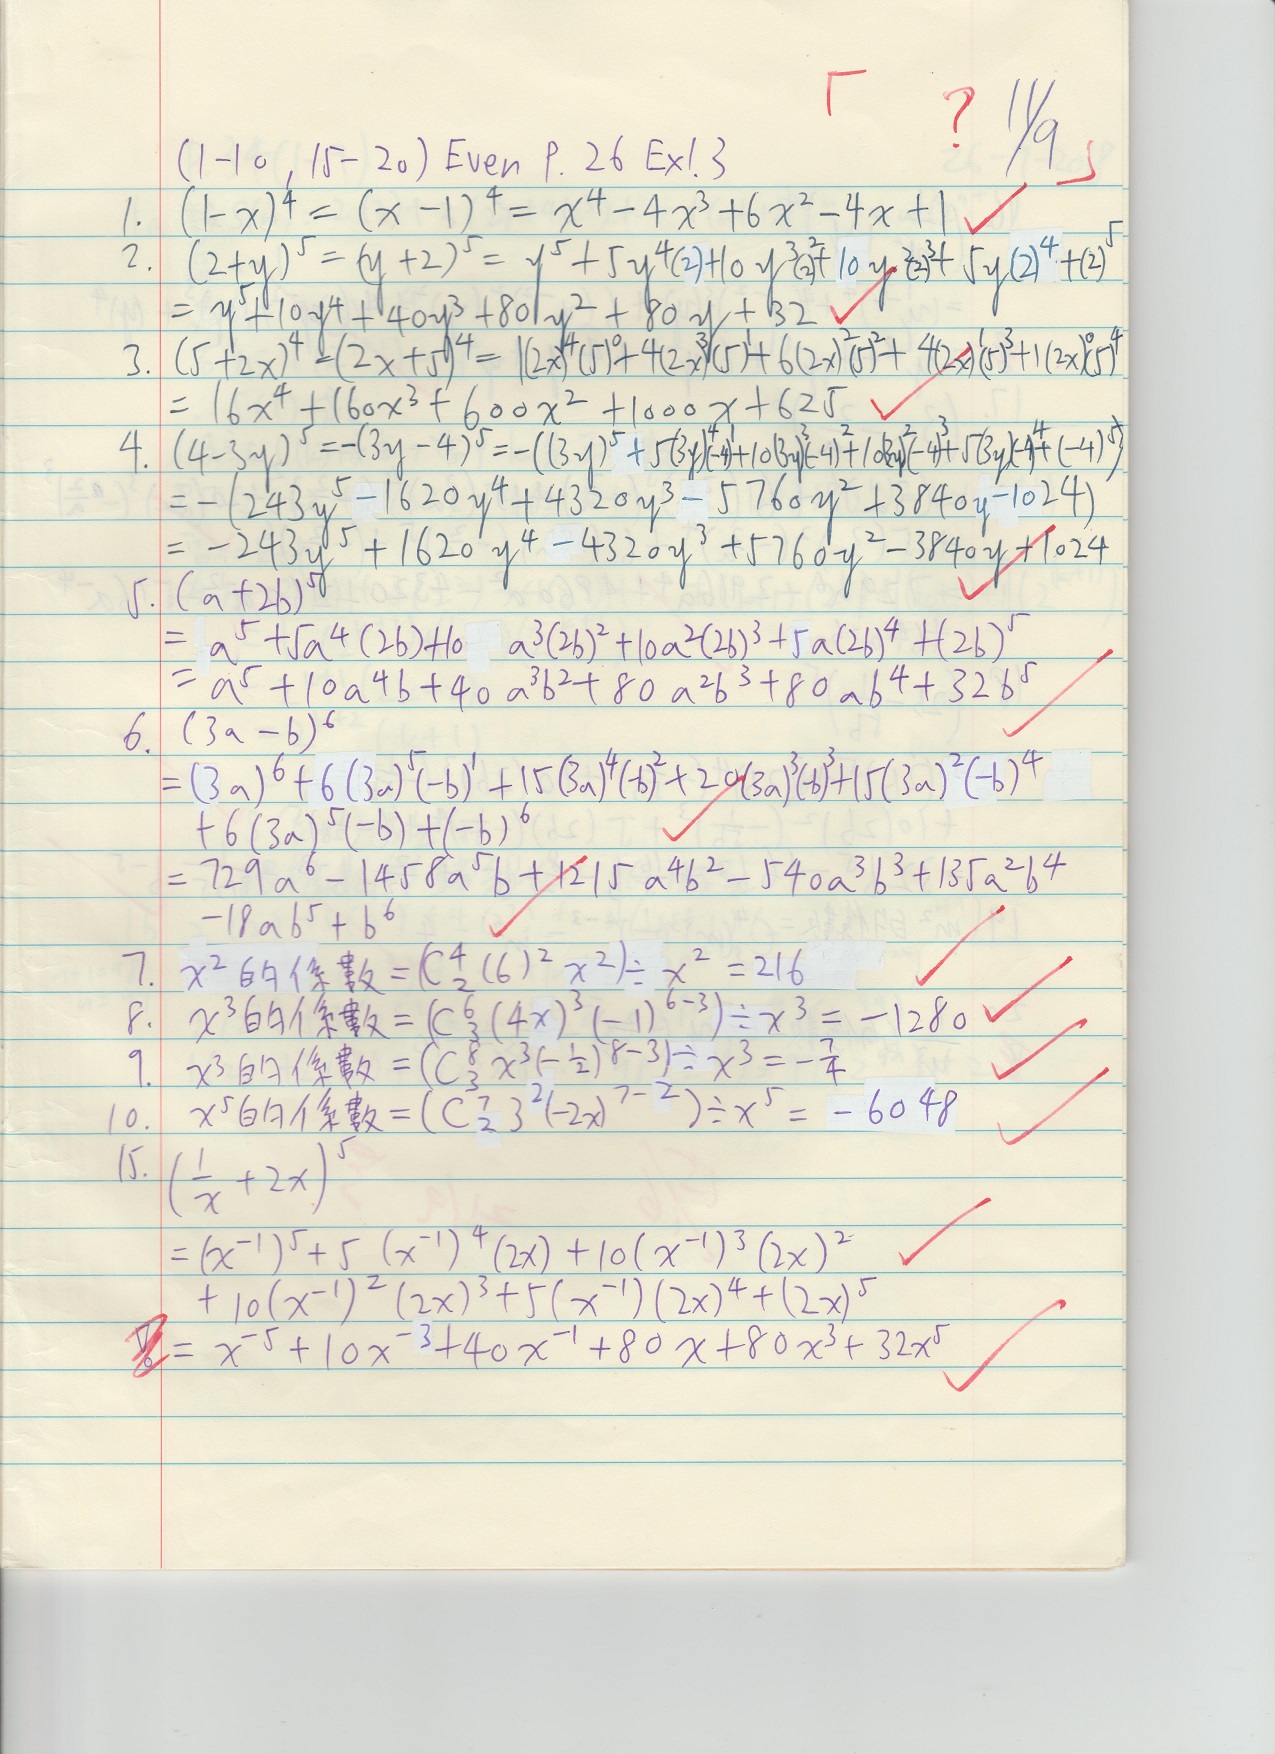 ? 11/9
(1-10, 15-20) Even P. 26 Ex1.3
1. (1-x)⁴ = (x-1)⁴ = x⁴-4x³+6x²-4x+1
2. (2+y)⁵ = (y+2)⁵ = y⁵+5y⁴(2)+10y³(2)²+10y²(2)³+5y(2)⁴+(2)⁵
= y⁵+10y⁴+40y³+80y²+80y+32
3. (5+2x)⁴=(2x+5)⁴=1(2x)⁴(5)⁰+4(2x)³(5)¹+6(2x)²(5)²+4(2x)¹(5)³+1(2x)⁰(5)⁴
= 16x⁴+160x³+600x²+1000x+625
4. (4-3y)⁵=-(3y-4)⁵=-((3y)⁵+5(3y)⁴(-4)¹+10(3y)³(-4)²+10(3y)²(-4)³+5(3y)(-4)⁴+(-4)⁵)
= -(243y⁵-1620y⁴+4320y³-5760y²+3840y-1024)
= -243y⁵+1620y⁴-4320y³+5760y²-3840y+1024
5. (a+2b)⁵
= a⁵+5a⁴(2b)+10a³(2b)²+10a²(2b)³+5a(2b)⁴+(2b)⁵
= a⁵+10a⁴b+40a³b²+80a²b³+80ab⁴+32b⁵
6. (3a-b)⁶
=(3a)⁶+6(3a)⁵(-b)¹+15(3a)⁴(-b)²+20(3a)³(-b)³+15(3a)²(-b)⁴
+6(3a)⁵(-b)+(-b)⁶
= 729a⁶-1458a⁵b+1215a⁴b²-540a³b³+135a²b⁴
-18ab⁵+b⁶
7. x²的係數=(C⁴₂(6)²x²)÷x²=216
8. x³的係數=(C⁶₃(4x)³(-1)⁶⁻³)÷x³=-1280
9. x³的係數=(C⁸₃x³(-1/2)⁸⁻³)÷x³=-7/4
10. x⁵的係數=(C⁷₂3²(-2x)⁷⁻²)÷x⁵=-6048
15. (1/x+2x)⁵
=(x⁻¹)⁵+5(x⁻¹)⁴(2x)+10(x⁻¹)³(2x)²
+10(x⁻¹)²(2x)³+5(x⁻¹)(2x)⁴+(2x)⁵
= x⁻⁵+10x⁻³+40x⁻¹+80x+80x³+32x⁵